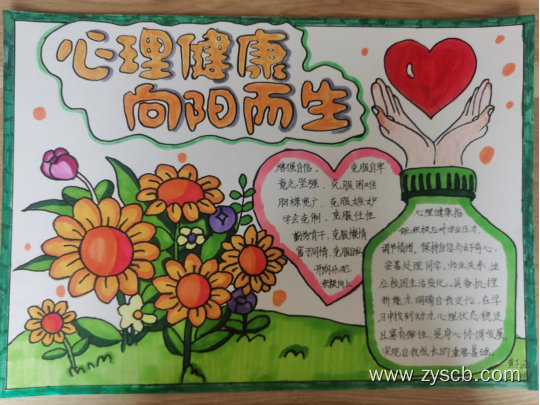 心理健康
向阳而生
增强自信，克服自卑
意志坚强，克服困难
胸襟宽广，克服嫉妒
学会克制，克服任性
勤劳肯干，克服懒惰
富于同情，克服自私
开朗乐观，
积极向上
心理健康指
能积极应对学业压力、
调节情绪，保持自信与好奇心，
妥善处理同学、师生关系，适
应校园生活变化，具备抗挫
折能力，明确自我定位，在学
习中找到动力，心理状态稳定
且富有弹性，是身心协调发展、
实现自我成长的重要基础。
www.zyscb.com